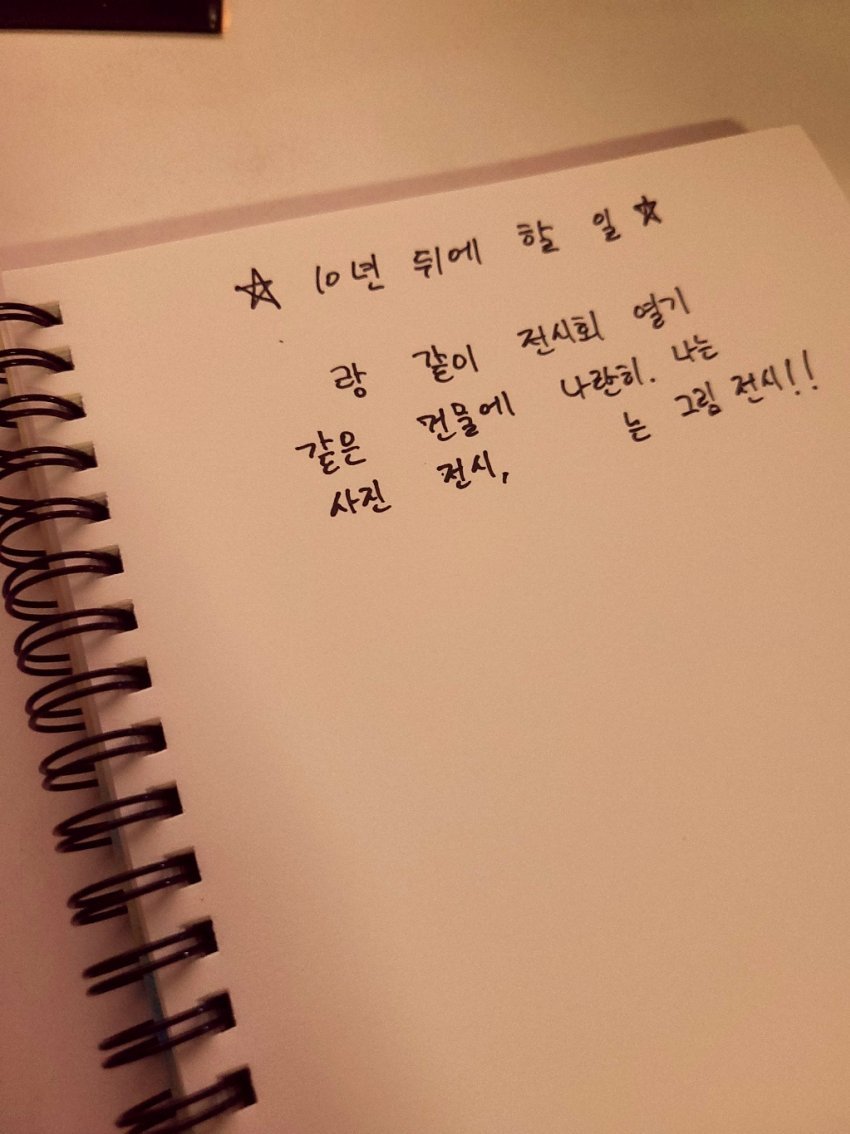 ☆ 10년 뒤에 할 일 ☆
랑 같이 전시회 열기
같은 건물에 나란히. 나는
사진 전시, 는 그림 전시!!